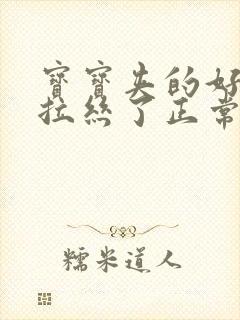 寶寶夹的好
拉絲了正常
糯米道人